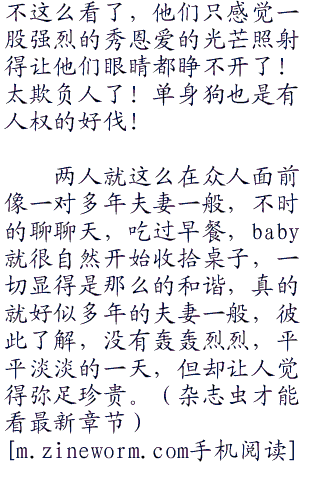 不这么看了，他们只感觉一
股强烈的秀恩爱的光芒照射
得让他们眼睛都睁不开了！
太欺负人了！单身狗也是有
人权的好伐！
两人就这么在众人面前
像一对多年夫妻一般，不时
的聊聊天，吃过早餐，baby
就很自然开始收拾桌子，一
切显得是那么的和谐，真的
就好似多年的夫妻一般，彼
此了解，没有轰轰烈烈，平
平淡淡的一天，但却让人觉
得弥足珍贵。（杂志虫才能
看最新章节）
[m.zineworm.com手机阅读]